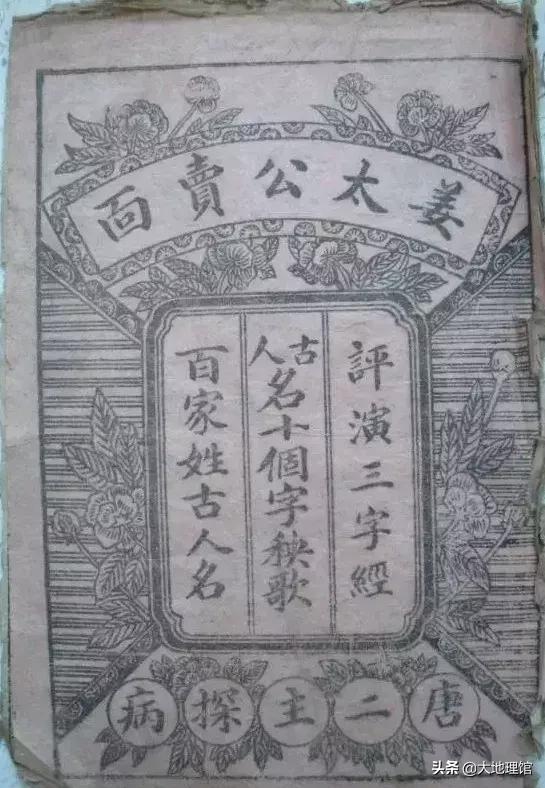 姜太公賣靣
評演三字經
古人名十個字秧歌
百家姓古人名
唐二主探病
头条 @大地理馆